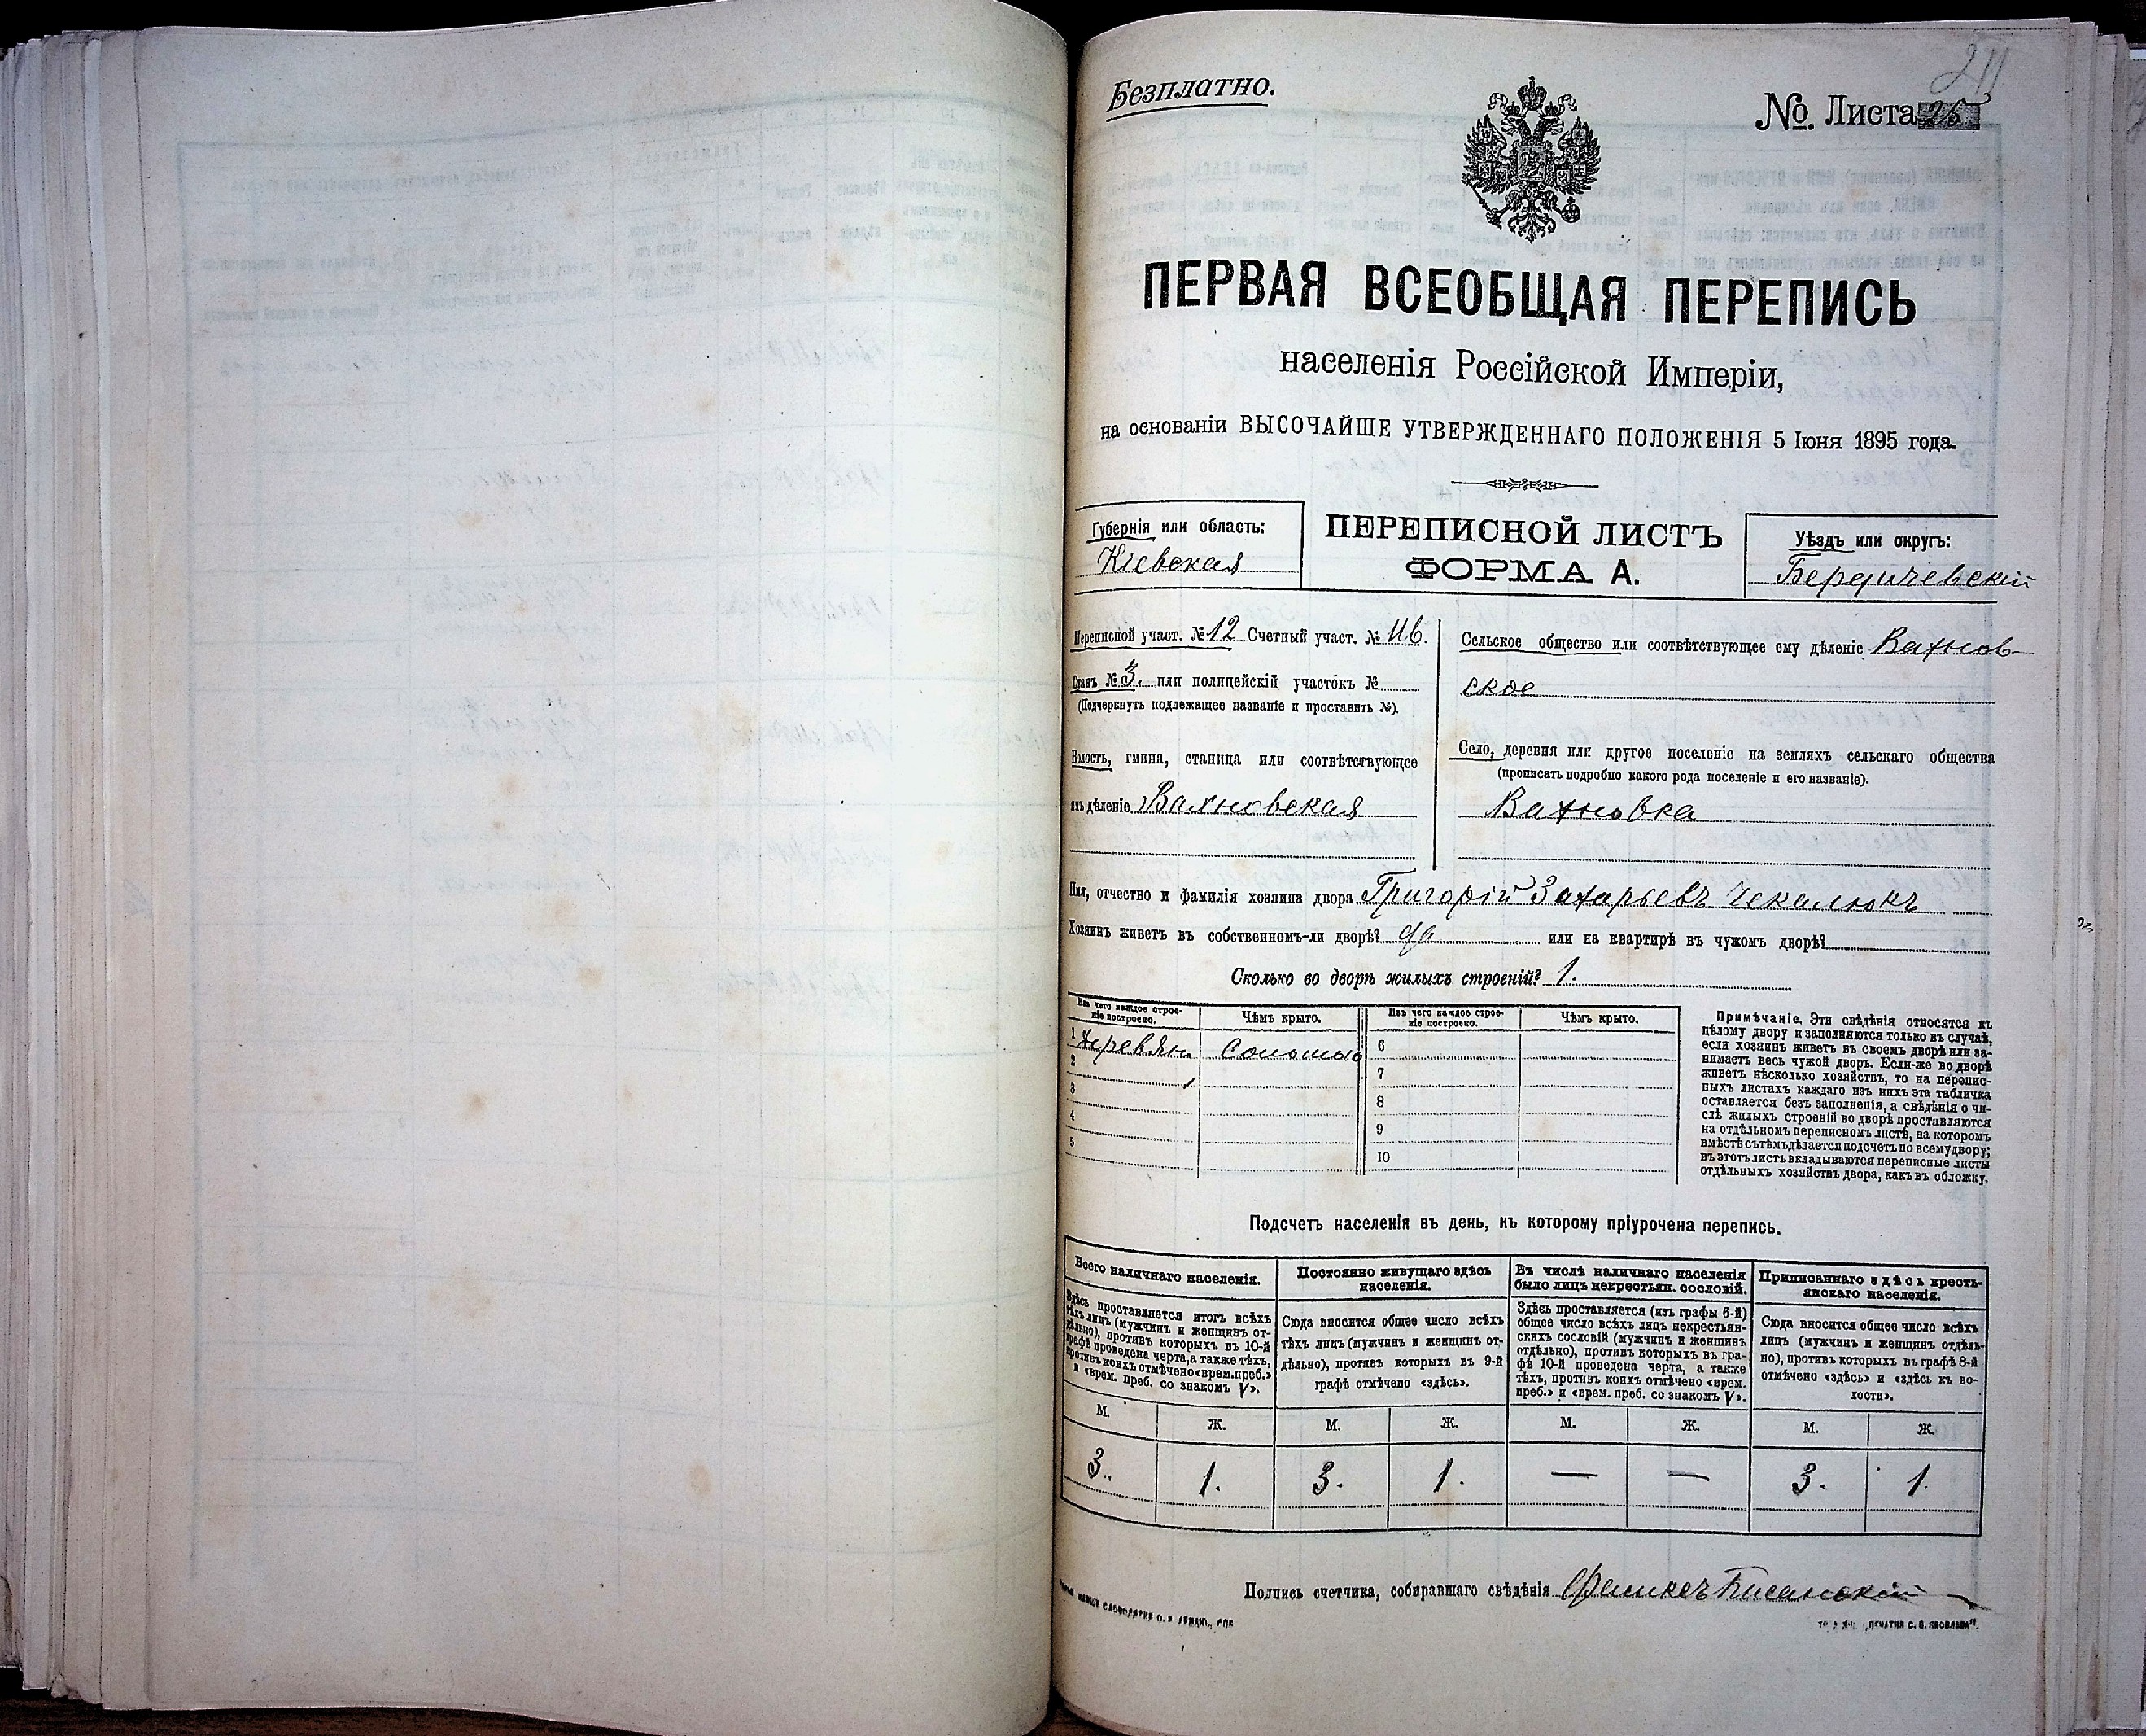 211
Безплатно.
№. Листа 25
ПЕРВАЯ ВСЕОБЩАЯ ПЕРЕПИСЬ
населенія Россійской Имперіи,
на основаніи ВЫСОЧАЙШЕ УТВЕРЖДЕННАГО ПОЛОЖЕНІЯ 5 Іюня 1895 года.
Губернія или область:
Кіевская
ПЕРЕПИСНОЙ ЛИСТЪ
ФОРМА А.
Уѣздъ или округъ:
Бердичевскій
Переписной участ. № 12 Счетный участ. №
Станъ № 3. или полицейскій участокъ №
(Подчеркнуть подлежащее названіе и проставить №).
Волость, гмина, станица или соотвѣтствующее
имъ дѣленіе Вахновская
Сельское общество или соотвѣтствующее ему дѣленіе Вахнов-
ское
Село, деревня или другое поселеніе на земляхъ сельскаго общества
(прописать подробно какого рода поселеніе и его названіе).
Вахновка
Имя, отчество и фамилія хозяина двора Григорій Захарьевъ Чекалюкъ
Хозяинъ живетъ въ собственномъ-ли дворѣ? да или на квартирѣ въ чужомъ дворѣ?
Сколько во дворѣ жилыхъ строеній? 1.
Изъ чего каждое строе-
ніе построено.
Чѣмъ крыто.
Изъ чего каждое строе-
ніе построено.
Чѣмъ крыто.
1 Деревян. Соломою 6
2 7
3 8
4 9
5 10
Примѣчаніе. Эти свѣдѣнія относятся къ
цѣлому двору и заполняются только въ случаѣ,
если хозяинъ живетъ въ своемъ дворѣ или за-
нимаетъ весь чужой дворъ. Если-же во дворѣ
живетъ нѣсколько хозяйствъ, то на перепис-
ныхъ листахъ каждаго изъ нихъ эта табличка
оставляется безъ заполненія, а свѣдѣнія о чи-
слѣ жилыхъ строеній во дворѣ проставляются
на отдѣльномъ переписномъ листѣ, на которомъ
вмѣстѣ съ тѣмъ дѣлается подсчетъ по всему двору;
въ этотъ листъ вкладываются переписные листы
отдѣльныхъ хозяйствъ двора, какъ въ обложку.
Подсчетъ населенія въ день, къ которому пріурочена перепись.
Всего наличнаго населенія.
Здѣсь проставляется итогъ всѣхъ
тѣхъ лицъ (мужчинъ и женщинъ от-
дѣльно), противъ которыхъ въ 10-й
графѣ проведена черта, а также тѣхъ,
противъ коихъ отмѣчено «врем. преб.»
и «врем. преб. со знакомъ V».
Постоянно живущаго здѣсь
населенія.
Сюда вносится общее число всѣхъ
тѣхъ лицъ (мужчинъ и женщинъ от-
дѣльно), противъ которыхъ въ 9-й
графѣ отмѣчено «здѣсь».
Въ числѣ наличнаго населенія
было лицъ некрестьян. сословій.
Здѣсь проставляется (изъ графы 6-й)
общее число всѣхъ лицъ некрестьян-
скихъ сословій (мужчинъ и женщинъ
отдѣльно), противъ которыхъ въ гра-
фѣ 10-й проведена черта, а также
тѣхъ, противъ коихъ отмѣчено «врем.
преб.» и «врем. преб. со знакомъ V».
Приписаннаго здѣсь кресть-
янскаго населенія.
Сюда вносится общее число всѣхъ
лицъ (мужчинъ и женщинъ отдѣль-
но), противъ которыхъ въ графѣ 8-й
отмѣчено «здѣсь» и «здѣсь къ во-
лости».
М. Ж. М. Ж. М. Ж. М. Ж.
3. 1. 3. 1. — — 3. 1.
Подпись счетчика, собиравшаго свѣдѣнія Феликсъ Писанскій